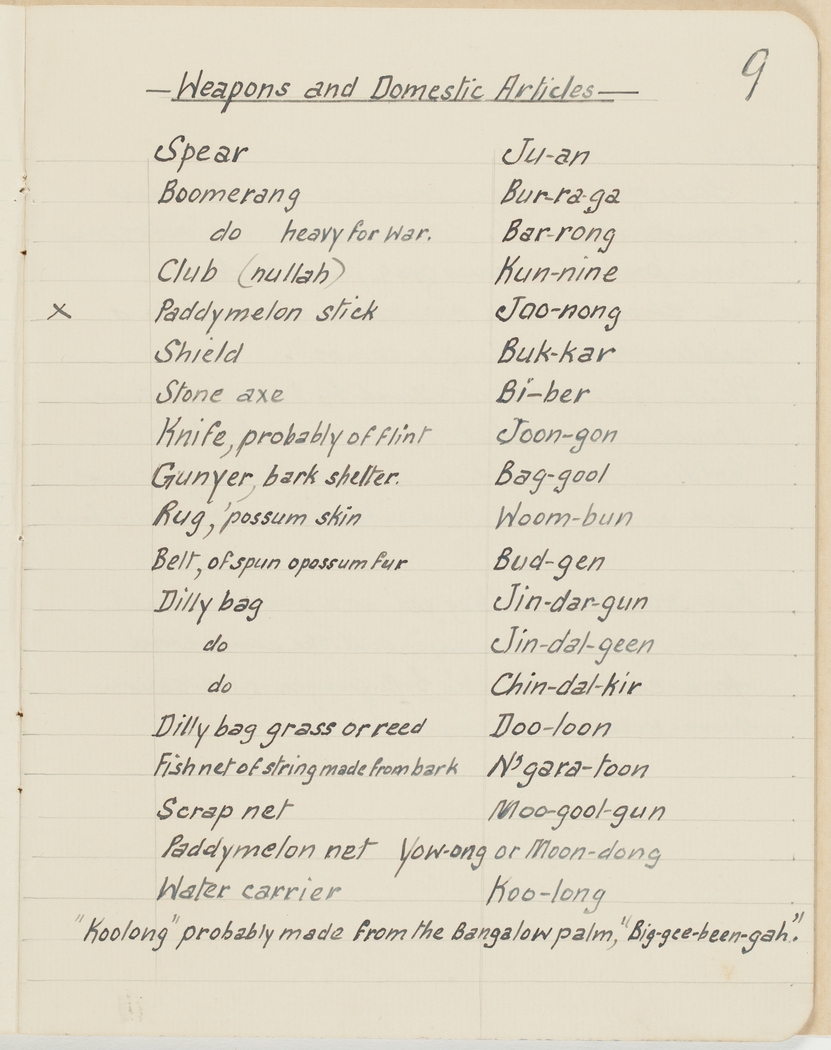 9
—Weapons and Domestic Articles—
Spear Ju-an
Boomerang Bur-ra-ga
do heavy for war. Bar-rong
Club (nullah) Kun-nine
x Paddymelon stick Joo-nong
Shield Buk-kar
Stone axe Bi-ber
Knife, probably of flint Joon-gon
Gunyer, bark shelter. Bag-gool
Rug, 'possum skin Woom-bun
Belt, of spun opossum fur Bud-gen
Dilly bag Jin-dar-gun
do Jin-dal-geen
do Chin-dal-kir
Dilly bag grass or reed Doo-loon
Fish net of string made from bark N'gara-toon
Scrap net Moo-gool-gun
Paddymelon net Yow-ong or Moon-dong
Water carrier Koo-long
"Koolong" probably made from the Bangalow palm, "Big-gee-been-gah".